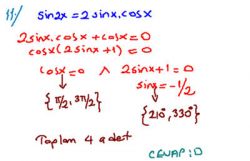 11/ sin2x = 2sinx.cosx
2sinx.cosx + cosx = 0
cosx(2sinx + 1) = 0
cosx = 0 ∧ 2sinx + 1 = 0
sinx = -1/2
{π/2, 3π/2} {210°, 330°}
Toplam 4 adet
CEVAP: D